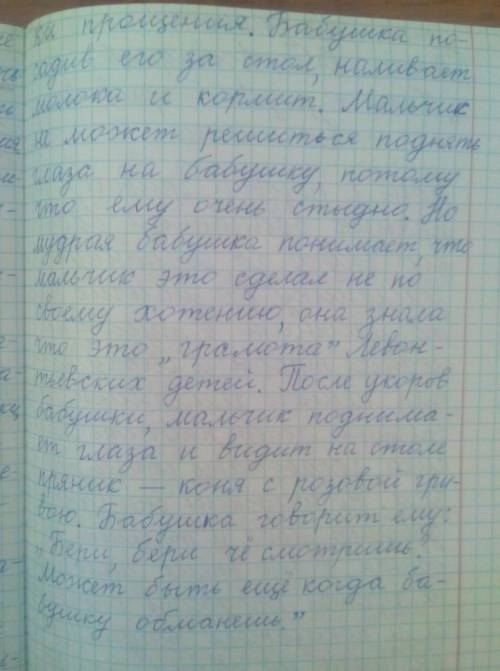 ки прощения. Бабушка по-
садив его за стол, наливает
молока и кормит. Мальчик
не может решиться поднять
глаза на бабушку, потому
что ему очень стыдно. Но
мудрая бабушка понимает, что
мальчик это сделал не по
своему хотению, она знала
что это „грамота" Левон-
тьевских детей. После укоров
бабушки, мальчик поднима-
ет глаза и видит на столе
пряник — коня с розовой гри-
вою. Бабушка говорит ему:
„Бери, бери чё смотришь?
Может быть ещё когда ба-
бушку обманешь."